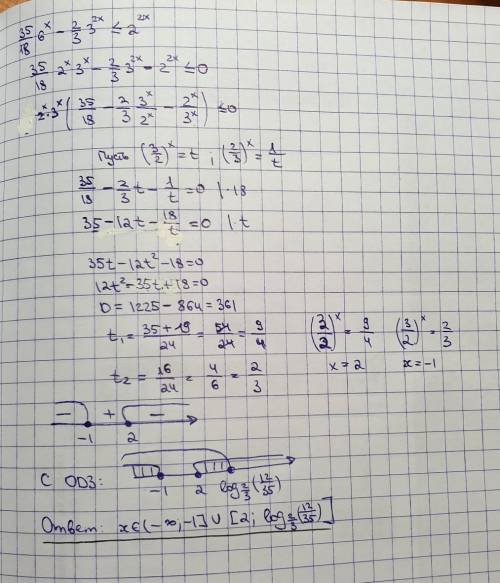 35/18 6^x − 2/3 3^2x ≤ 2^2x
35/18 2^x 3^x − 2/3 3^2x − 2^2x ≤ 0
2^x·3^x (35/18 − 2/3 3^x/2^x − 2^x/3^x) ≤ 0
Пусть (3/2)^x = t ; (2/3)^x = 1/t
35/18 − 2/3 t − 1/t = 0 |·18
35 − 12t − 18/t = 0 |·t
35t − 12t² − 18 = 0
12t² − 35t + 18 = 0
D = 1225 − 864 = 361
t₁ = 35+19/24 = 54/24 = 9/4 (3/2)^x = 9/4 (3/2)^x = 2/3
t₂ = 16/24 = 4/6 = 2/3 x = 2 x = −1
− + −
−1 2
С ОДЗ: −1 2 log_2/3 (12/35)
Ответ: x∈(−∞,−1]∪[2; log_2/3 (12/35)]